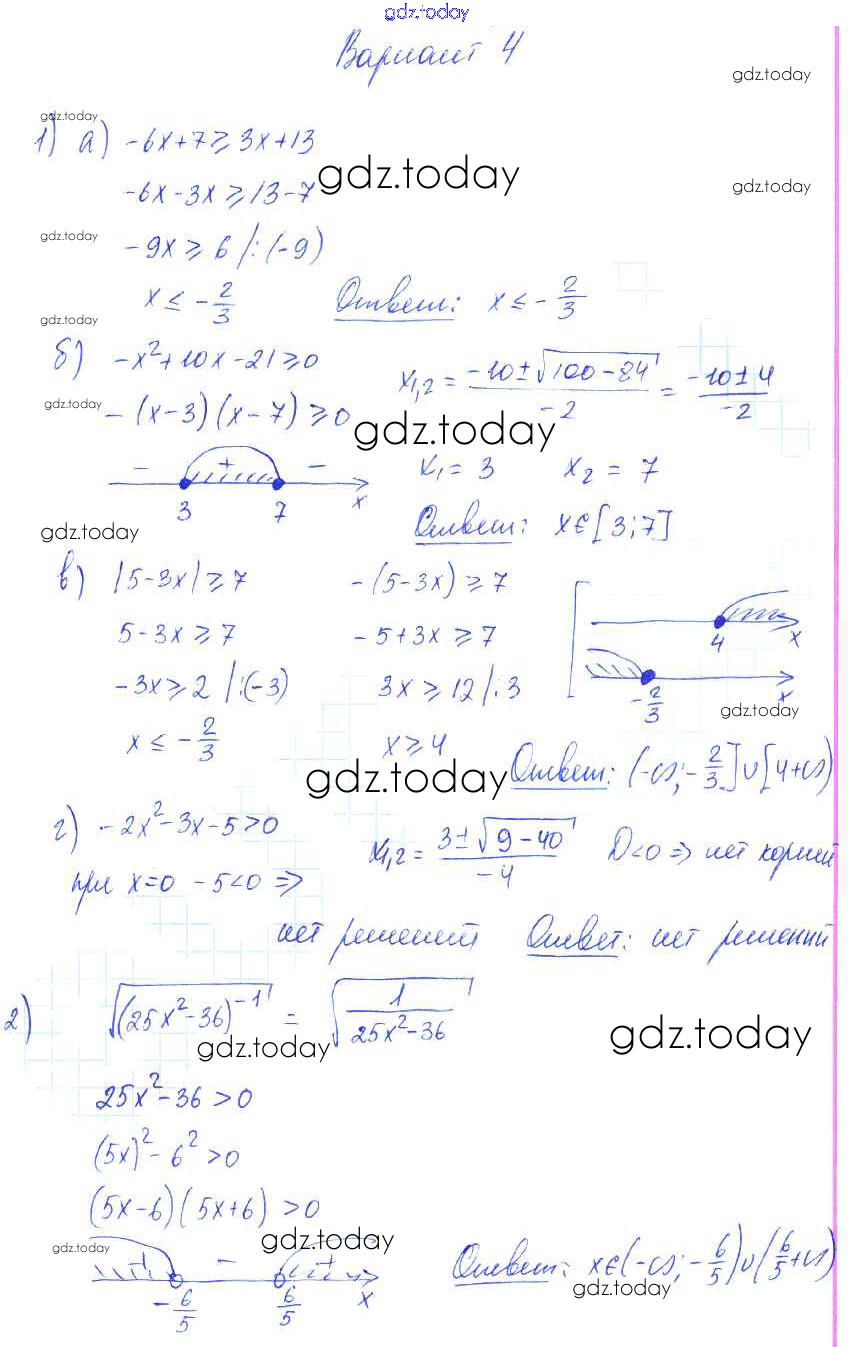 gdz.today
Вариант 4
gdz.today
gdz.today
1) а) -6x+7 ≥ 3x+13
gdz.today
-6x-3x ≥ 13-7
gdz.today
gdz.today
-9x ≥ 6 /:(-9)
x ≤ -2/3 Ответ: x ≤ -2/3
gdz.today
б) -x²+10x-21 ≥ 0 x₁,₂ = (-10±√(100-84))/(-2) = (-10±4)/(-2)
gdz.today
-(x-3)(x-7) ≥ 0
gdz.today
- + - x₁ = 3 x₂ = 7
3 7 x
Ответ: x∈[3;7]
gdz.today
в) |5-3x| ≥ 7 -(5-3x) ≥ 7
5-3x ≥ 7 -5+3x ≥ 7 4 x
-3x ≥ 2 /:(-3) 3x ≥ 12 /:3 -2/3 x
gdz.today
x ≤ -2/3 x ≥ 4
gdz.today
Ответ: (-∞;-2/3]∪[4+∞)
г) -2x²-3x-5>0 x₁,₂ = (3±√(9-40))/(-4) D<0 ⇒ нет корней
при x=0 -5<0 ⇒
нет решений Ответ: нет решений
2) √((25x²-36)⁻¹) = √(1/(25x²-36))
gdz.today
gdz.today
25x²-36>0
(5x)²-6²>0
(5x-6)(5x+6)>0
gdz.today
gdz.today
+ - + Ответ: x∈(-∞;-6/5)∪(6/5+∞)
gdz.today
-6/5 6/5 x